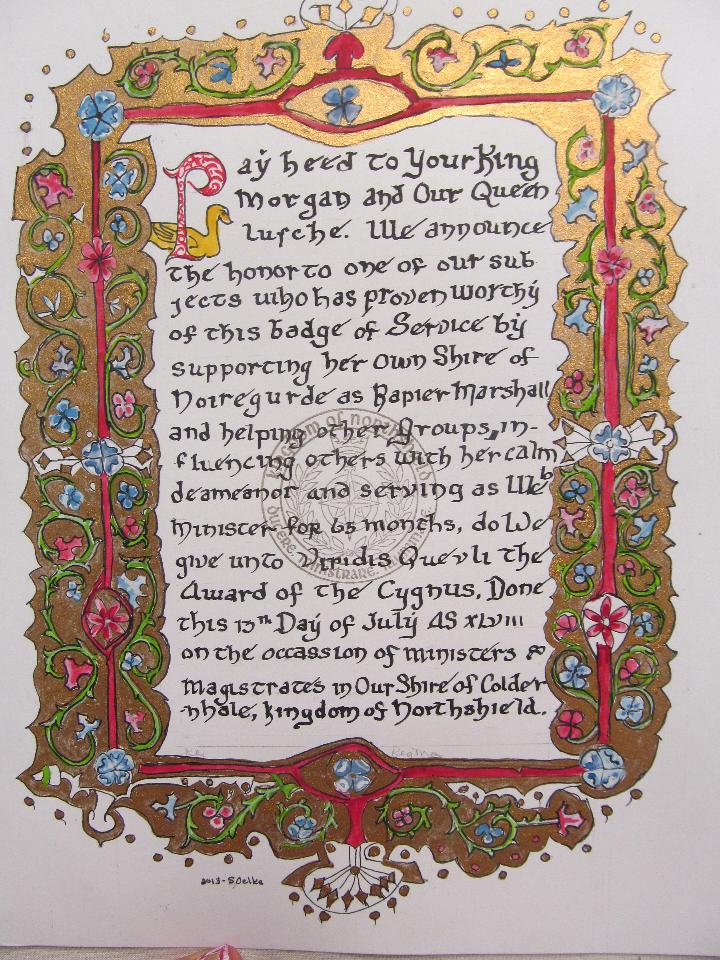 Pay heed to Your King
Morgan and Our Queen
Lusche. We announce
the honor to one of our sub
jects who has proven worthy
of this badge of Service by
supporting her own Shire of
Noiregurde as Rapier Marshall
and helping other Groups, in-
fluencing others with her calm
deameanor and serving as Web
Minister for 65 months, do We
give unto Viridis Quevli the
Award of the Cygnus, Done
this 13th Day of July AS XLVIII
on the occassion of ministers &
Magistrates in Our Shire of Colder
nhole, Kingdom of Northshield.
Rex Regina
2013 - S.Oelke
Kingdom of Northshield